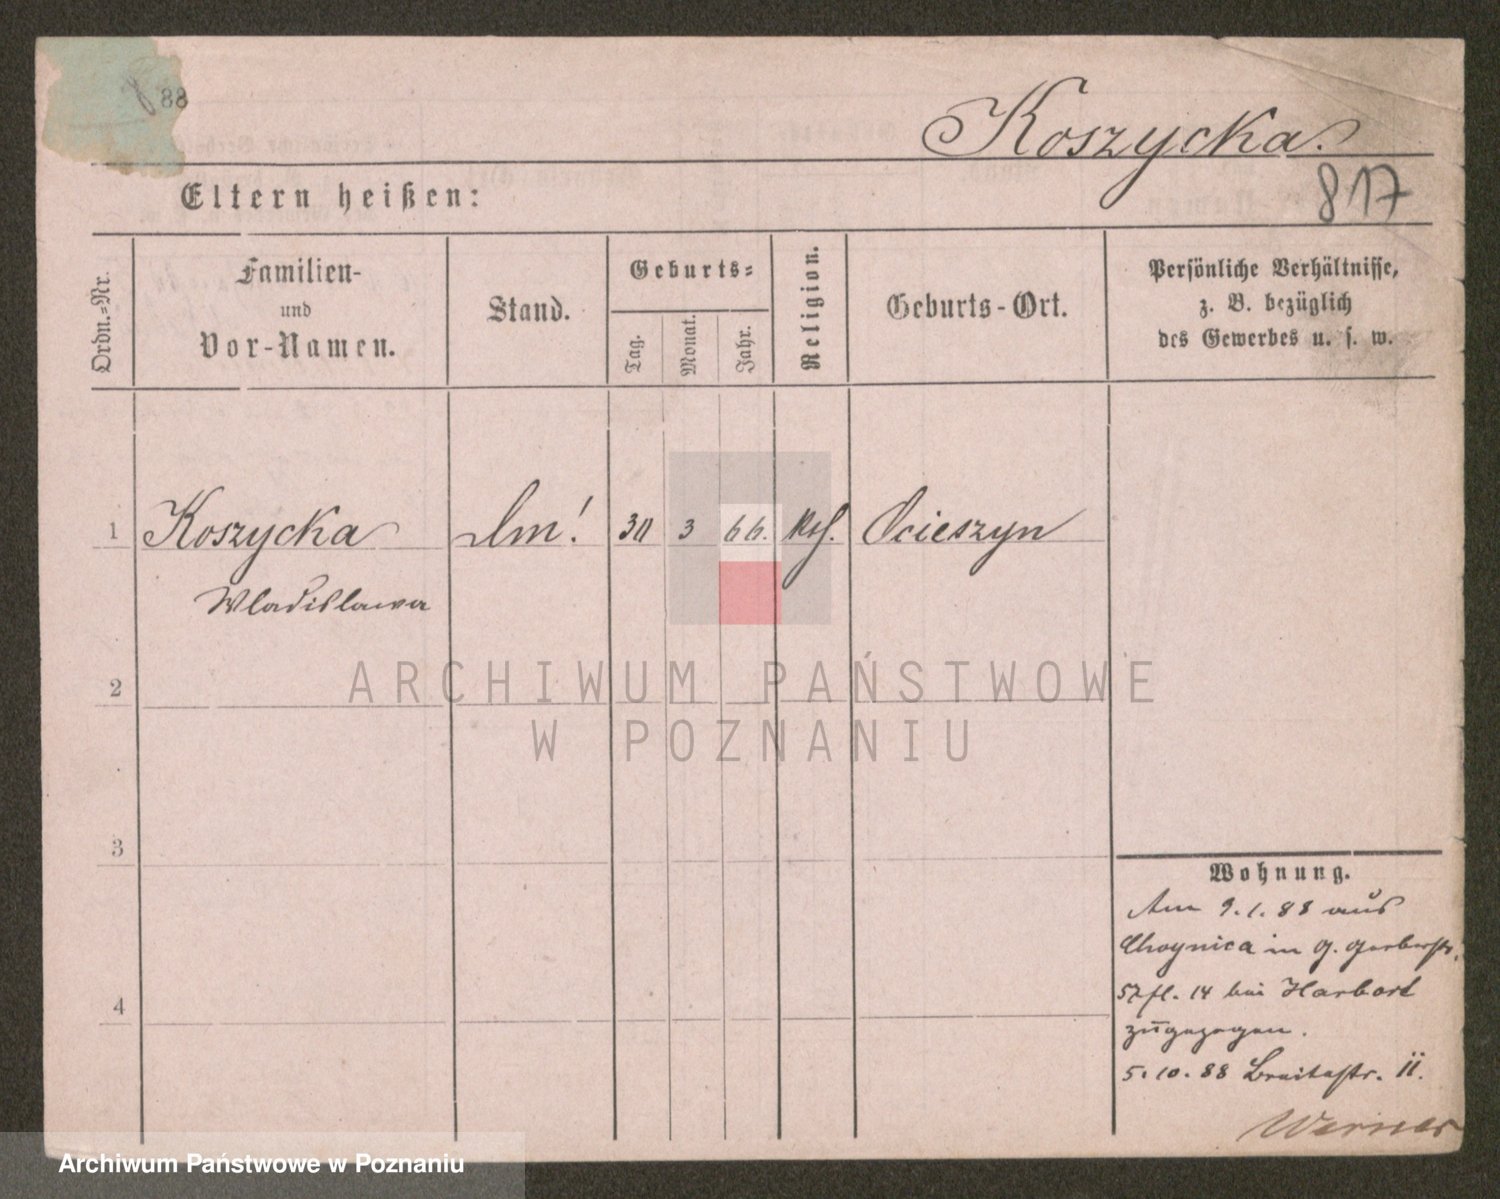 88
Koszycka.
Eltern heißen:
817
Ordn.=Nr.
Familien-
und
Vor-Namen.
Stand.
Geburts=
Tag.
Monat.
Jahr.
Religion.
Geburts-Ort.
Persönliche Verhältnisse,
z. B. bezüglich
des Gewerbes u. s. w.
1 Koszycka 30 3 66. Ocieszyn
Wladislawa
2
ARCHIWUM PAŃSTWOWE
W POZNANIU
3
Wohnung.
Am 9.1.88 aus
Choynica in g. Gerberstr.
14 bei Harbort
zugezogen.
4
5.10.88 Breitestr. 11.
Werner
Archiwum Państwowe w Poznaniu